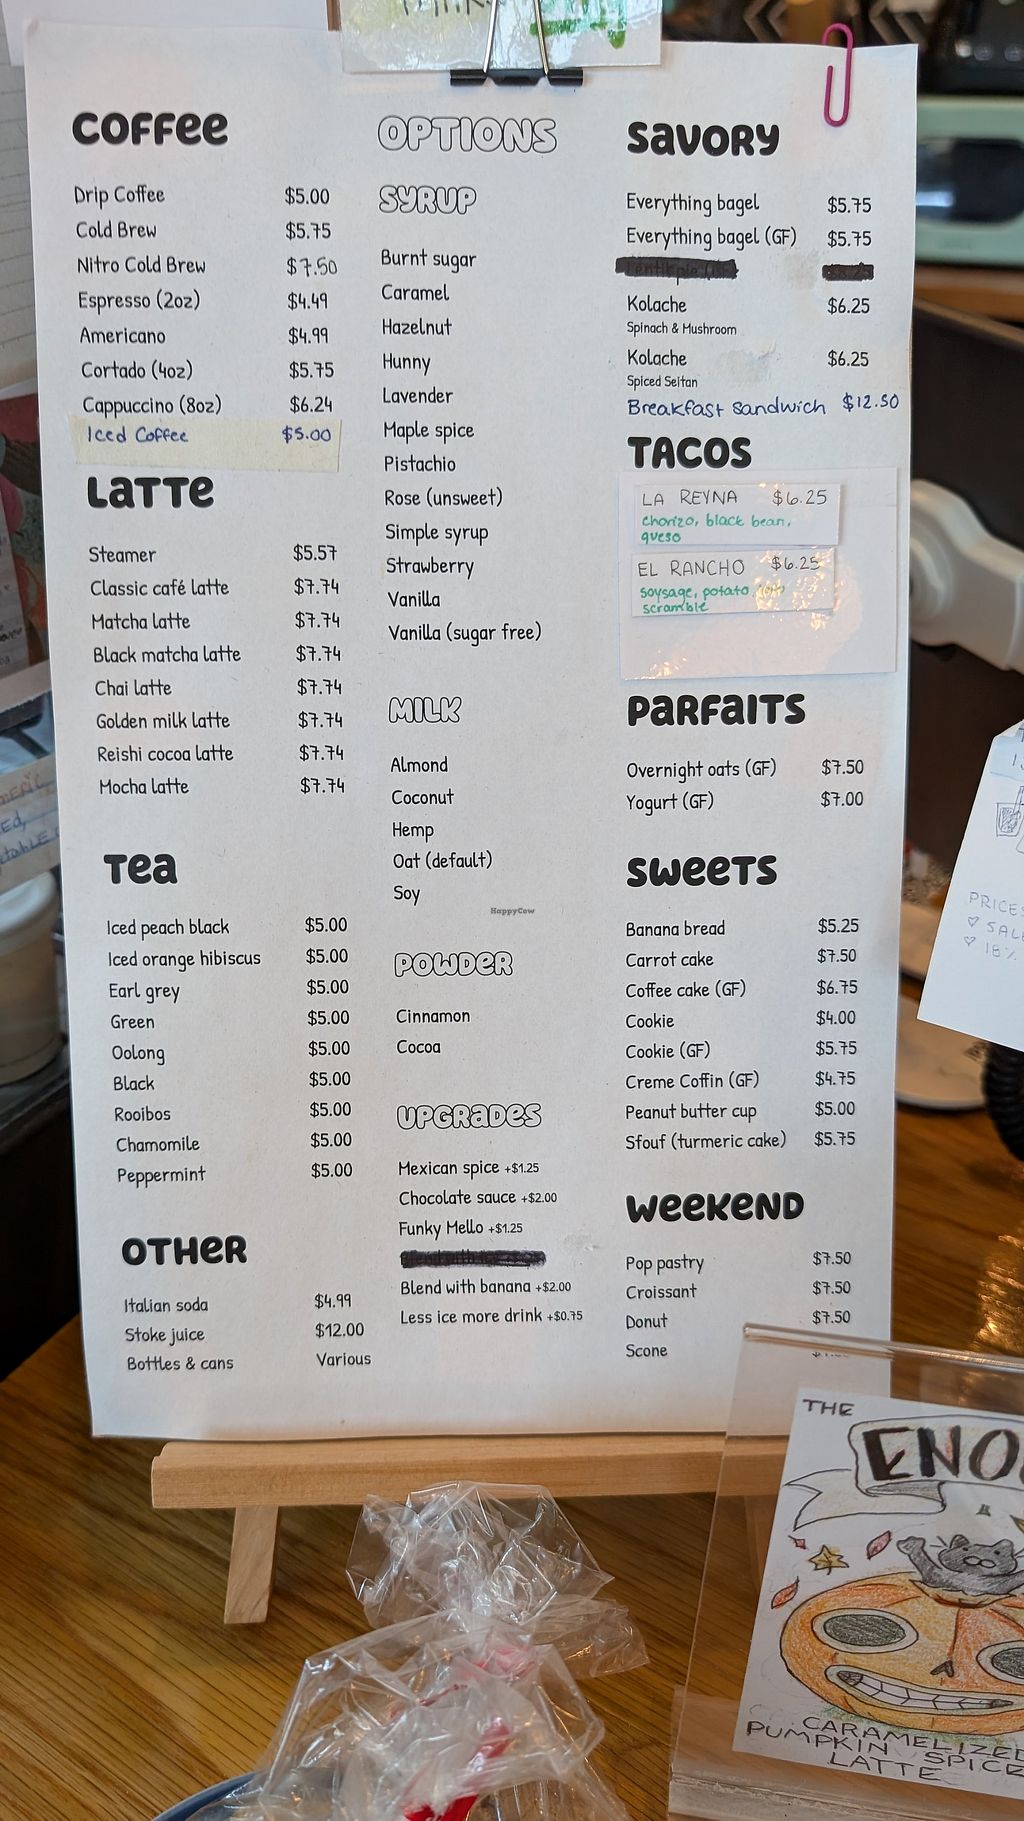 COFFEE
Drip Coffee $5.00
Cold Brew $5.75
Nitro Cold Brew $7.50
Espresso (2oz) $4.49
Americano $4.99
Cortado (4oz) $5.75
Cappuccino (8oz) $6.24
Iced Coffee $5.00
LATTE
Steamer $5.57
Classic café latte $7.74
Matcha latte $7.74
Black matcha latte $7.74
Chai latte $7.74
Golden milk latte $7.74
Reishi cocoa latte $7.74
Mocha latte $7.74
TEA
Iced peach black $5.00
Iced orange hibiscus $5.00
Earl grey $5.00
Green $5.00
Oolong $5.00
Black $5.00
Rooibos $5.00
Chamomile $5.00
Peppermint $5.00
OTHER
Italian soda $4.99
Stoke juice $12.00
Bottles & cans Various
OPTIONS
SYRUP
Burnt sugar
Caramel
Hazelnut
Hunny
Lavender
Maple spice
Pistachio
Rose (unsweet)
Simple syrup
Strawberry
Vanilla
Vanilla (sugar free)
MILK
Almond
Coconut
Hemp
Oat (default)
Soy
HappyCow
POWDER
Cinnamon
Cocoa
UPGRADES
Mexican spice +$1.25
Chocolate sauce +$2.00
Funky Mello +$1.25
Blend with banana +$2.00
Less ice more drink +$0.75
SAVORY
Everything bagel $5.75
Everything bagel (GF) $5.75
Kolache $6.25
Spinach & Mushroom
Kolache $6.25
Spiced Seitan
Breakfast sandwich $12.50
TACOS
LA REYNA $6.25
chorizo, black bean,
queso
EL RANCHO $6.25
soysage, potato
scramble
PARFAITS
Overnight oats (GF) $7.50
Yogurt (GF) $7.00
SWEETS
Banana bread $5.25
Carrot cake $7.50
Coffee cake (GF) $6.75
Cookie $4.00
Cookie (GF) $5.75
Creme Coffin (GF) $4.75
Peanut butter cup $5.00
Sfouf (turmeric cake) $5.75
WEEKEND
Pop pastry $7.50
Croissant $7.50
Donut $7.50
Scone
PRICES
18%
THE
CARAMELIZED
PUMPKIN SPICE
LATTE